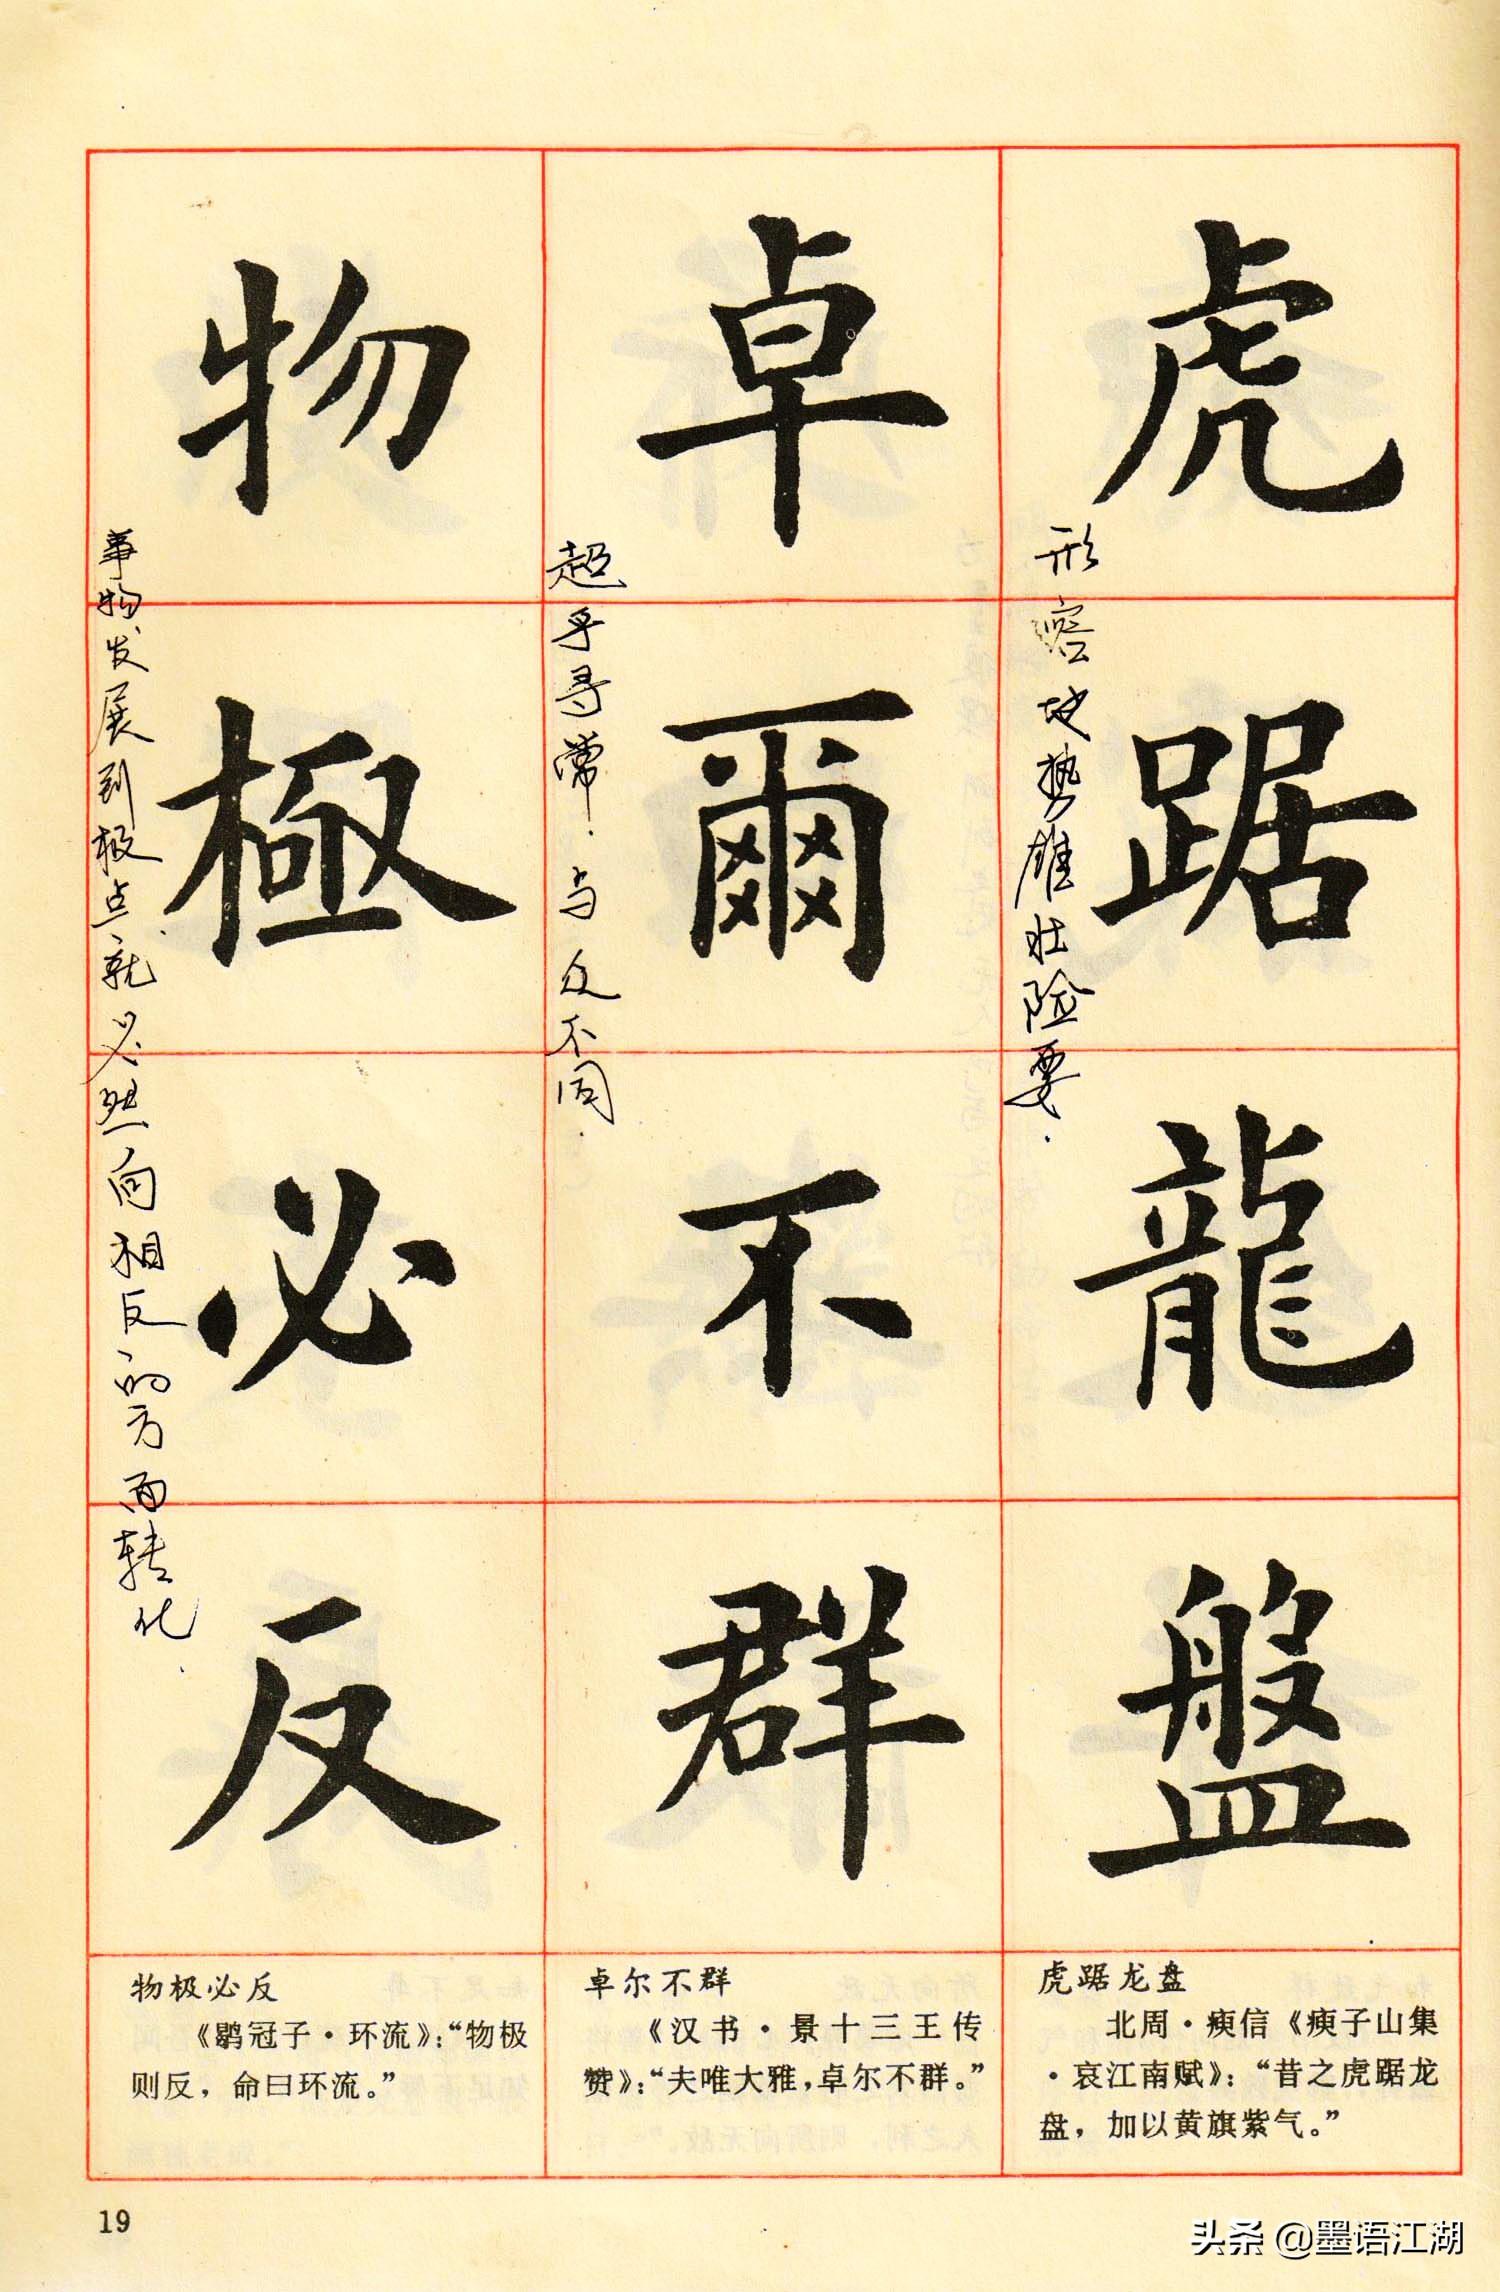 虎踞龍盤
形容地势雄壮险要.
卓爾不群
超乎寻常.与众不同.
物極必反
事物发展到极点就必然向相反的方面转化.
虎踞龙盘
北周·庾信《庾子山集
·哀江南赋》:“昔之虎踞龙
盘,加以黄旗紫气。”
卓尔不群
《汉书·景十三王传
赞》:“夫唯大雅,卓尔不群。”
物极必反
《鹖冠子·环流》:“物极
则反,命曰环流。”
19
头条@墨语江湖